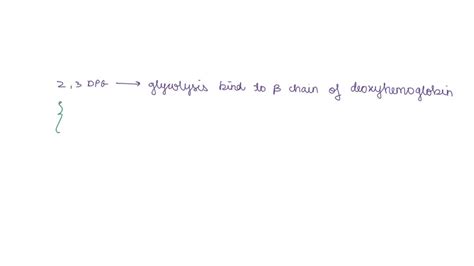 2,3 DPG → glycolysis bind to β chain of deoxyhemoglobin